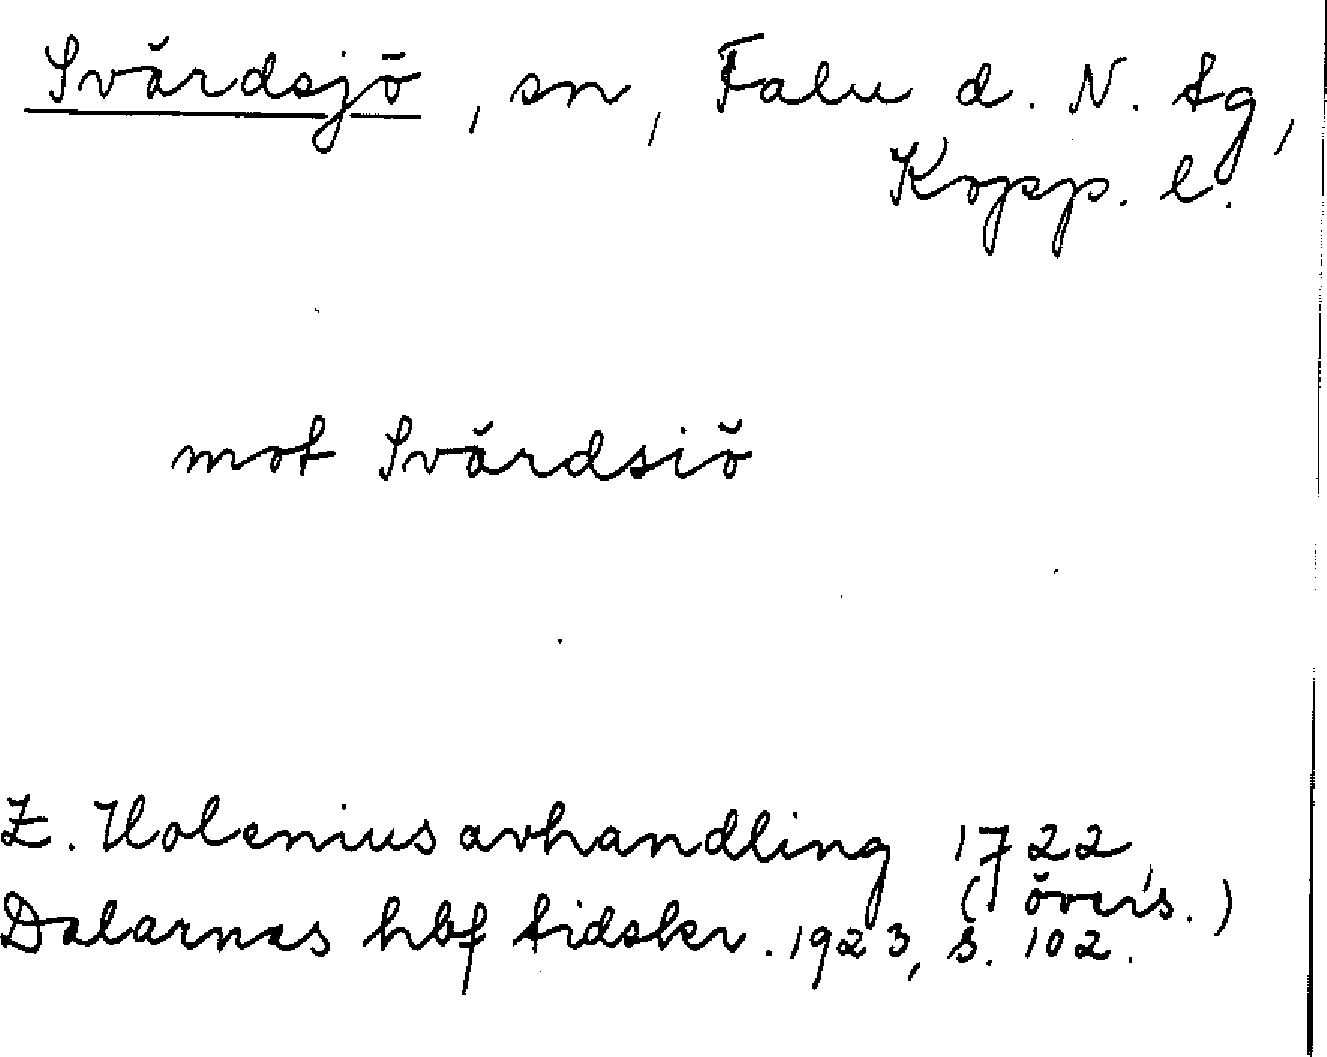 Svärdsjö, sn, Falu d. N. tg,
Kopp. l.
mot Svärdsiö
Z. Holenius avhandling 1722,
(i övers.)
Dalarnas hbf tidskr. 1923, s. 102.